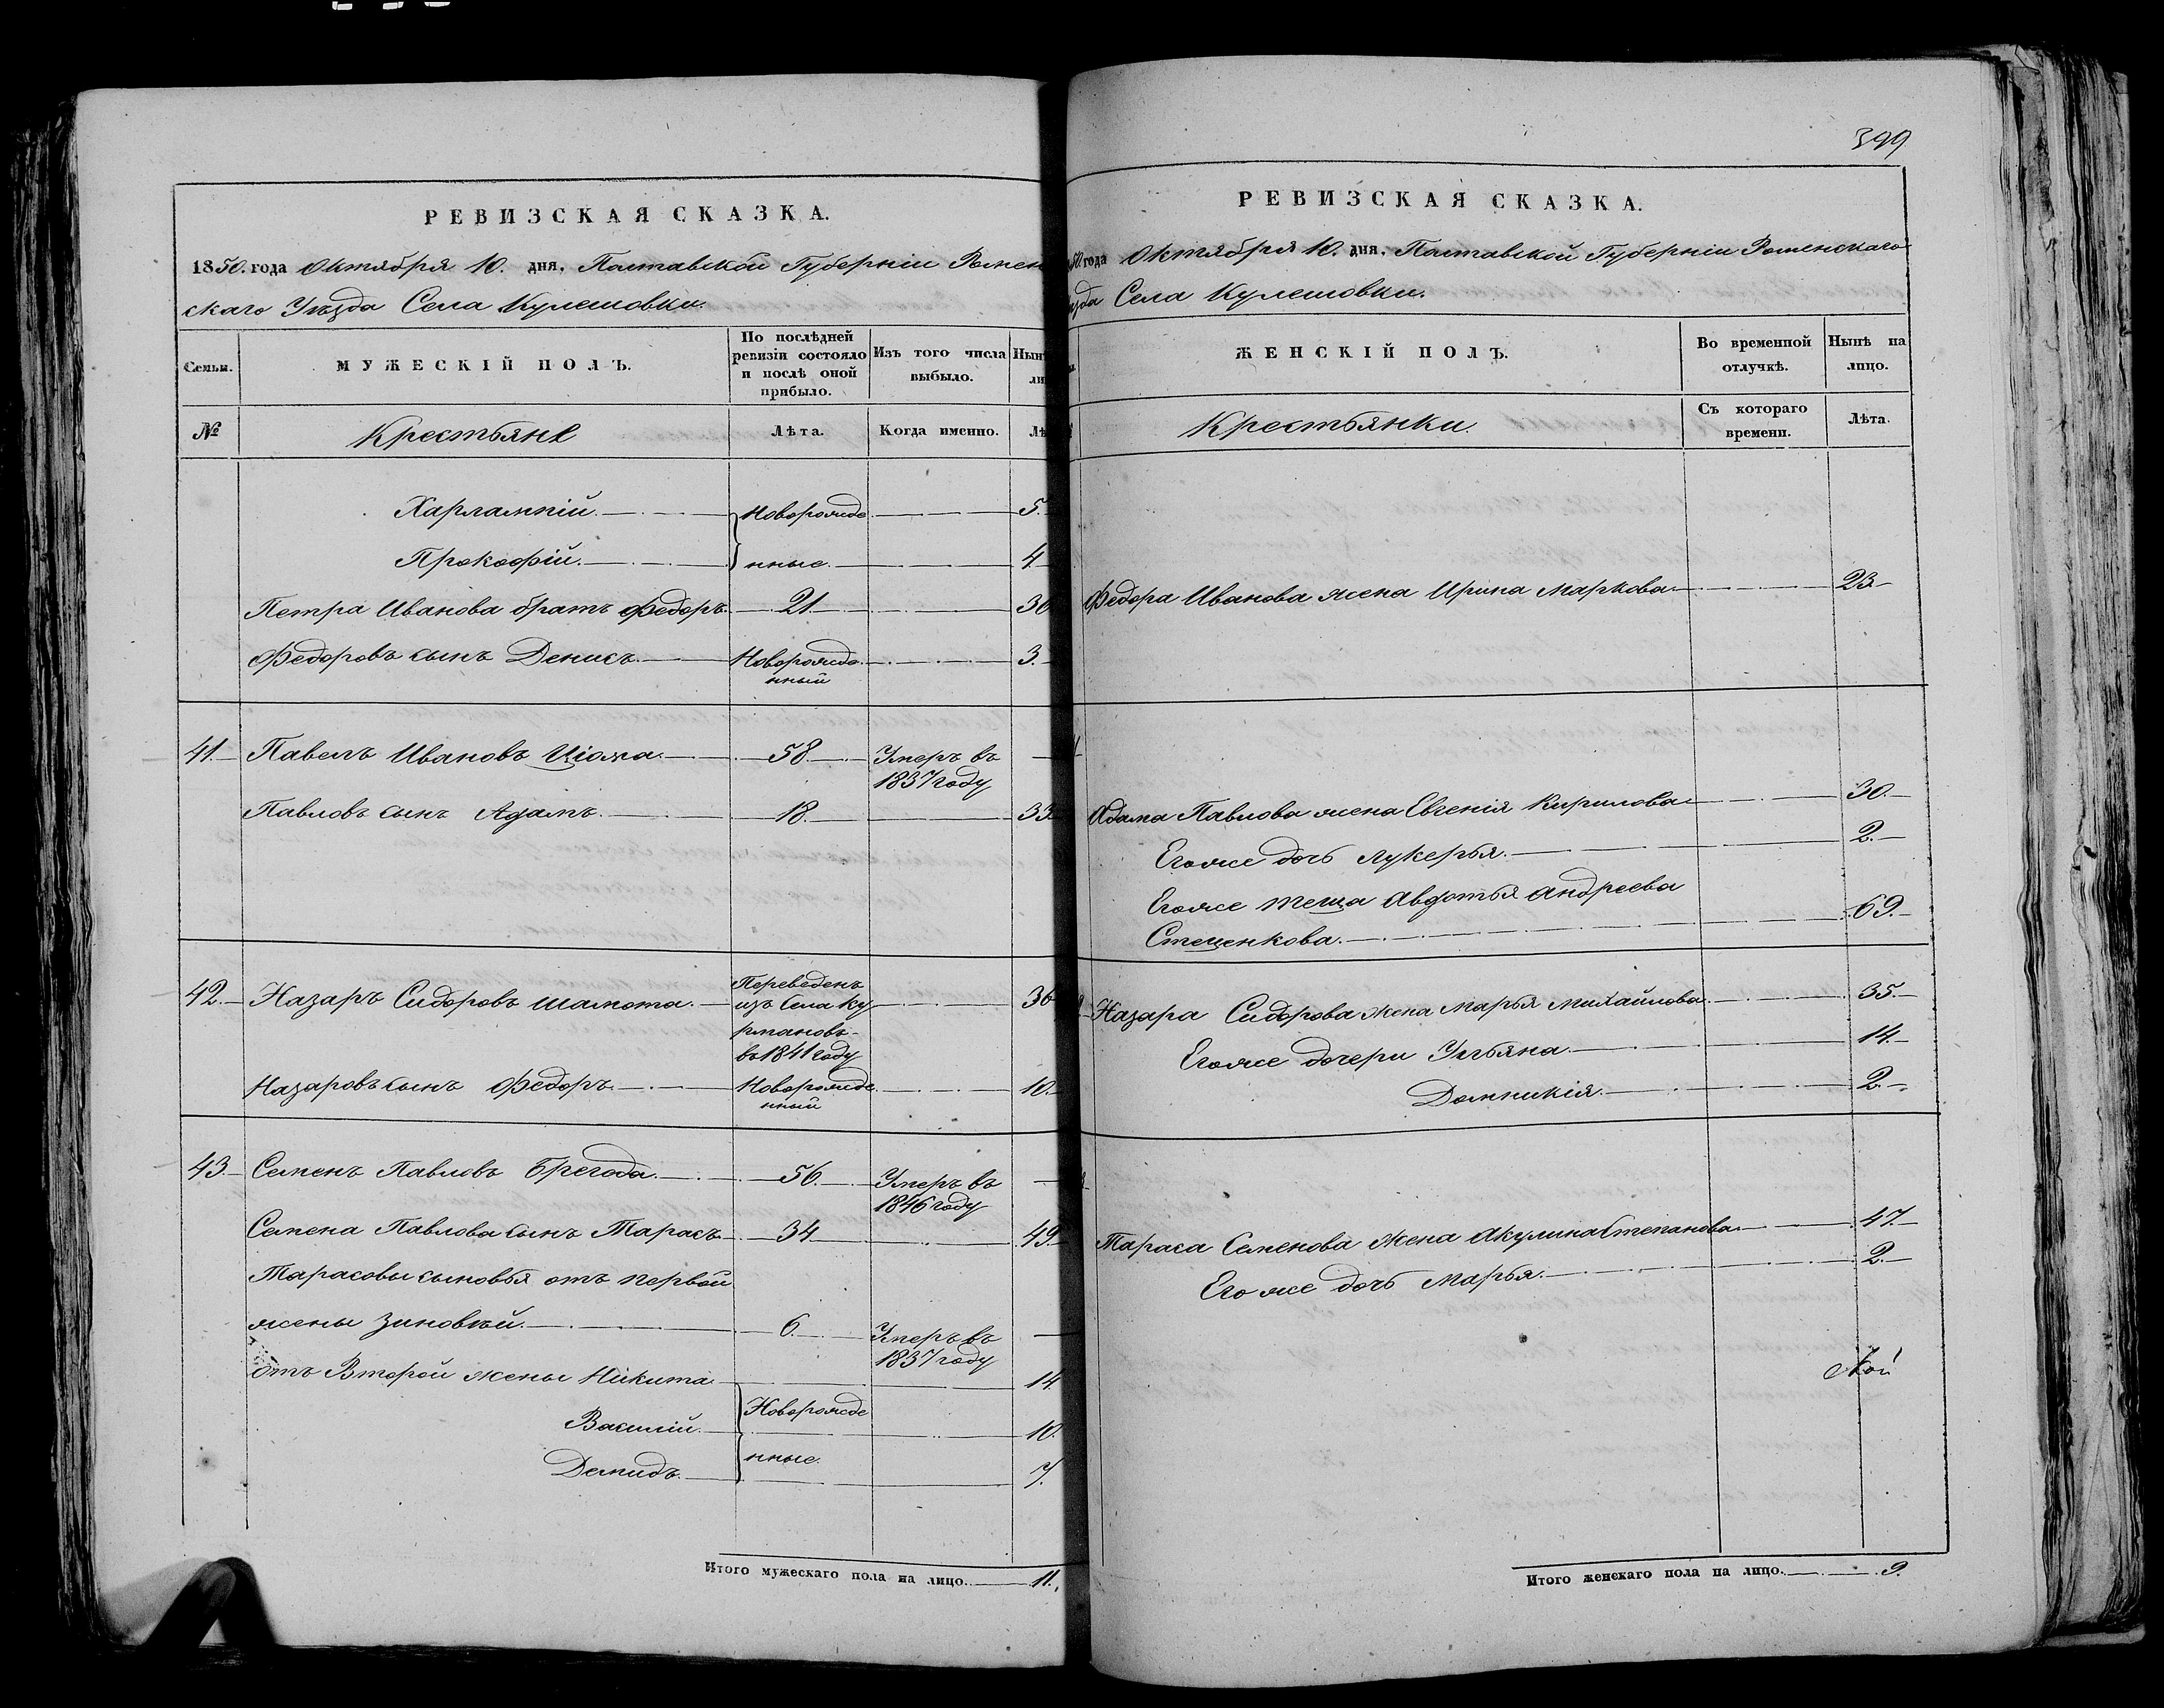 РЕВИЗСКАЯ СКАЗКА.
1850. года Октября 10. дня, Полтавской Губерніи Ромен
скаго Уѣзда Села Кулешовки.
Семьи.
МУЖЕСКІЙ ПОЛЪ.
По послѣдней
ревизіи состояло
и послѣ оной
прибыло.
Изъ того числа
выбыло.
Нын
ли
№
Крестьяне
Лѣта.
Когда именно.
Лѣ
Харлампій. Новорожде 5.
Прокофій. нные. 4
Петра Иванова братъ Федоръ 21 36
Федоровъ сынъ Денисъ. Новорожде 3.
нный
41. Павелъ Ивановъ Ціома. 58. Умеръ въ
1837 году
Павловъ сынъ Адамъ. 18. 33
42. Назаръ Сидоровъ Шамота. Переведенъ
изъ Села Ку 36
рмановъ
въ 1841 году
Назаровъ сынъ Федоръ. Новорожде 10.
нный
43. Семенъ Павловъ Брегода. 56. Умеръ въ
1846 году
Семена Павлова сынъ Тарасъ 34 49
Тарасовы сыновья отъ первой
жены Зиновѣй. 6. Умеръ въ
1837 году
отъ Второй жены Никита 14
Новорожде
Василій. 10.
нные.
Демидъ. 7.
Итого мужескаго пола на лицо. 11.
399
РЕВИЗСКАЯ СКАЗКА.
50 года Октября 10. дня, Полтавской Губерніи Роменскаго
ѣзда Села Кулешовки.
ЖЕНСКІЙ ПОЛЪ.
Во временной
отлучкѣ.
Нынѣ на
лицо.
Крестьянки.
Съ котораго
времени.
Лѣта.
Федора Иванова жена Ирина Маркова 23
Адама Павлова жена Евгенія Кирилова 30.
Егоже дочь Лукерья. 2.
Егоже теща Авдотья Андреева
Стеценкова. 69.
Назара Сидорова жена Марья Михайлова 35.
Егоже дочери Ульяна. 14.
Домникія. 2.
Тараса Семенова жена Акулина Степанова 47.
Егоже дочь Марья. 2.
Итого женскаго пола на лицо. 9.